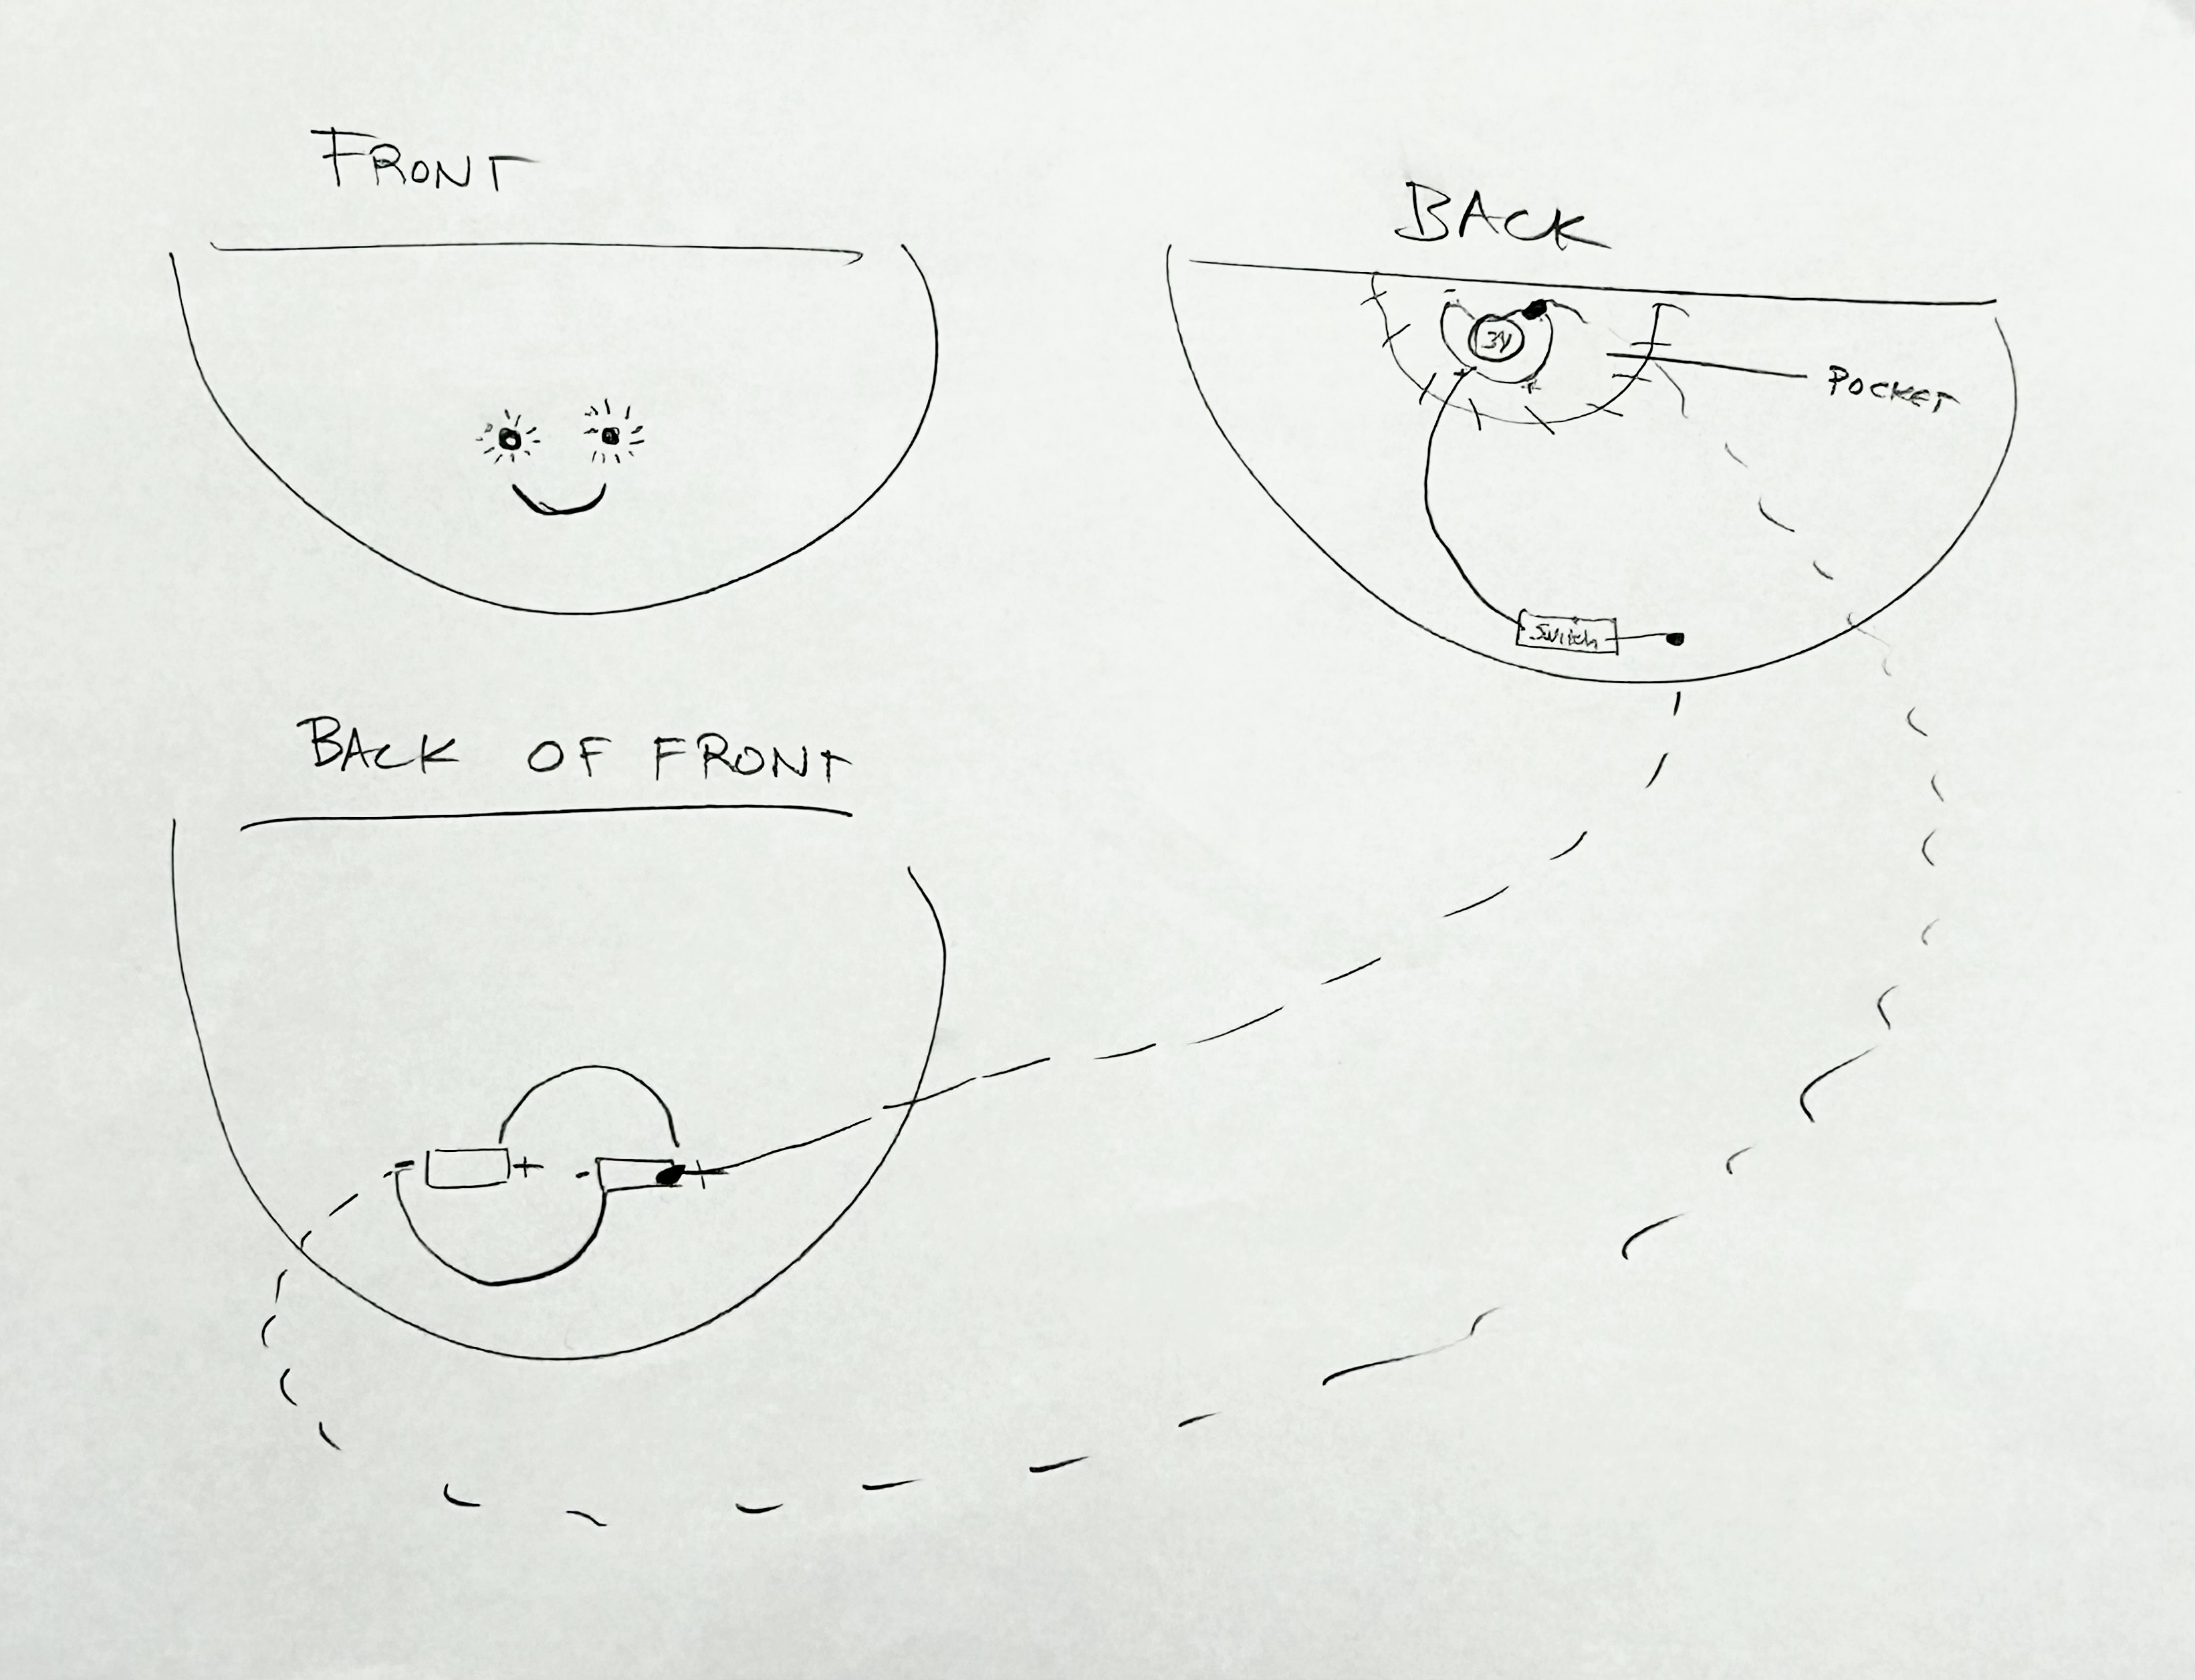 FRONT
BACK
3V
POCKET
Switch
BACK OF FRONT
- + - +